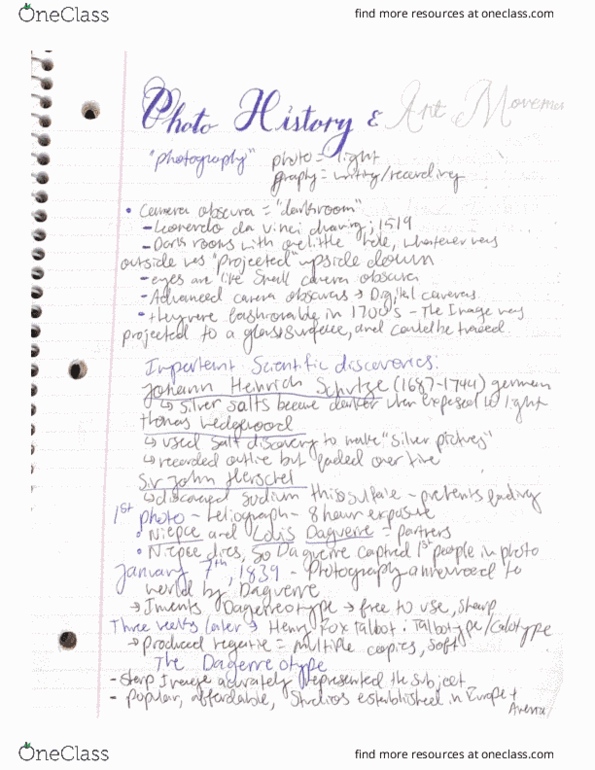 OneClass
find more resources at oneclass.com
Photo History & Art Movemen
"photography" photo = light
graphy = writing/recording
• Camera obscura = "darkroom"
- Leonardo da Vinci drawing; 1519
- Dark rooms with one little hole, whatever was
outside was "projected" upside down
- eyes are like small camera obscura
- Advanced camera obscuras → Digital cameras
- they were fashionable in 1700's - The Image was
projected to a glass surface, and could be traced
Important Scientific discoveries:
Johann Heinrich Schultze (1687-1744) german
↳ Silver salts became darker when exposed to light
Thomas Wedgwood
↳ used salt discovery to make "silver pictures"
↳ recorded outline but faded over time
Sir John Herschel
↳ discovered sodium thiosulfate - prevents fading
1st photo - heliograph - 8 hour exposure
• Niepce and Louis Daguerre = partners
• Niepce dies, so Daguerre captured 1st people in photo
January 7th, 1839 - Photography announced to
world by Daguerre
→ Invents Daguerreotype → free to use, sharp
Three weeks later → Henry Fox Talbot: Talbotype/Calotype
→ Produced negative = multiple copies, soft
The Daguerreotype
- Sharp Image accurately represented the subject
- popular, affordable, Studios established in Europe +
OneClass
find more resources at oneclass.com